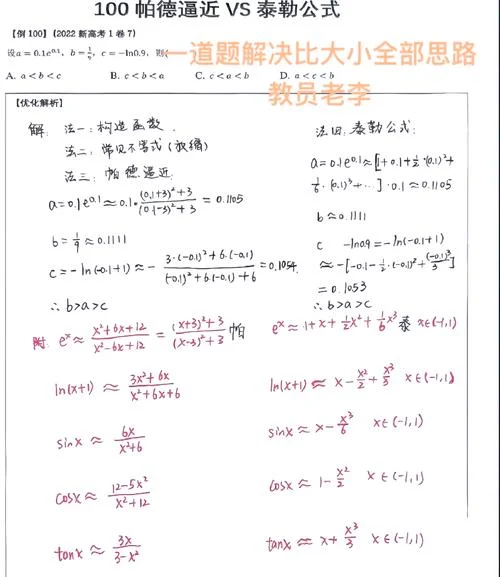 100 帕德逼近 VS 泰勒公式
【例 100】(2022 新高考 1 卷 7)
设a = 0.1e^{0.1}, b = \frac{1}{9}, c = -ln0.9, 则
一道题解决比大小全部思路
教员老李
A. a < b < c B. c < b < a C. c < a < b D. a < c < b
【优化解析】
解: 法一: 构造函数.
法二: 常见不等式 (放缩)
法三: 帕德逼近:
a=0.1e^{0.1}≈0.1·\frac{(0.1+3)^2+3}{(0.1-3)^2+3} = 0.1105
b=\frac{1}{9}≈0.1111
c=-ln(-0.1+1)≈-\frac{3·(-0.1)^2+6·(-0.1)}{(-0.1)^2+6·(-0.1)+6}=0.1054
∴b>a>c
法四: 泰勒公式:
a=0.1e^{0.1}≈[1+0.1+\frac{1}{2}·(0.1)^2+
\frac{1}{6}·(0.1)^3+...]·0.1≈0.1105
b≈0.1111
c -ln0.9=-ln(-0.1+1)
≈-[-0.1-\frac{1}{2}·(-0.1)^2+\frac{(-0.1)^3}{3}]
=0.1053
∴b>a>c
附: e^x≈\frac{x^2+6x+12}{x^2-6x+12}=\frac{(x+3)^2+3}{(x-3)^2+3} 帕
e^x≈1+x+\frac{1}{2}x^2+\frac{1}{6}x^3 泰 x∈(-1,1)
ln(x+1)≈\frac{3x^2+6x}{x^2+6x+6}
ln(x+1)≈x-\frac{x^2}{2}+\frac{x^3}{3} x∈(-1,1)
sinx≈\frac{6x}{x^2+6}
sinx≈x-\frac{x^3}{6} x∈(-1,1)
cosx≈\frac{12-5x^2}{x^2+12}
cosx≈1-\frac{x^2}{2} x∈(-1,1)
tanx≈\frac{3x}{3-x^2}
tanx≈x+\frac{x^3}{3} x∈(-1,1)